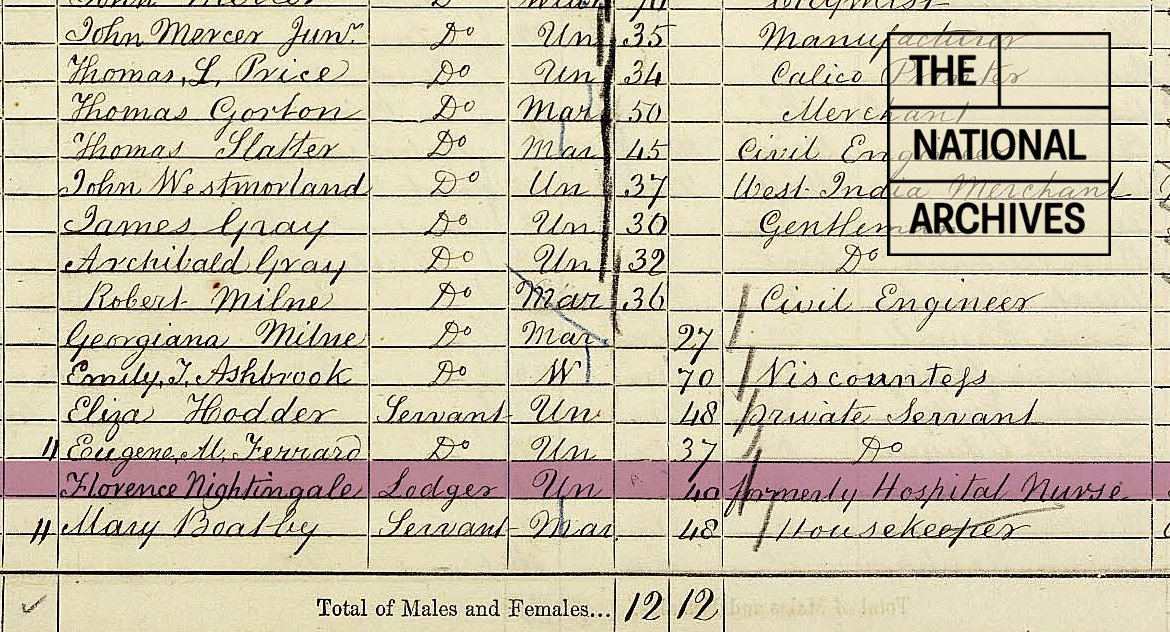 John Mercer Do Wid 70
John Mercer Junr. Do Un 35 Manufacturer
Thomas, L, Price Do Un 34 Calico Printer
Thomas Gorton Do Mar 50 Merchant
Thomas Slatter Do Mar 45 Civil Engineer
John Westmorland Do Un 37 West India Merchant
James Gray Do Un 30 Gentleman
Archibald Gray Do Un 32 Do
Robert Milne Do Mar 36 Civil Engineer
Georgiana Milne Do Mar 27
Emily, T, Ashbrook Do W 70 Viscountess
Eliza Hodder Servant Un 48 private Servant
" Eugene, M, Ferrard Do Un 37 Do
Florence Nightingale Lodger Un 40 formerly Hospital Nurse
" Mary Boatby Servant Mar 48 Housekeeper
Total of Males and Females... 12 12
THE
NATIONAL
ARCHIVES